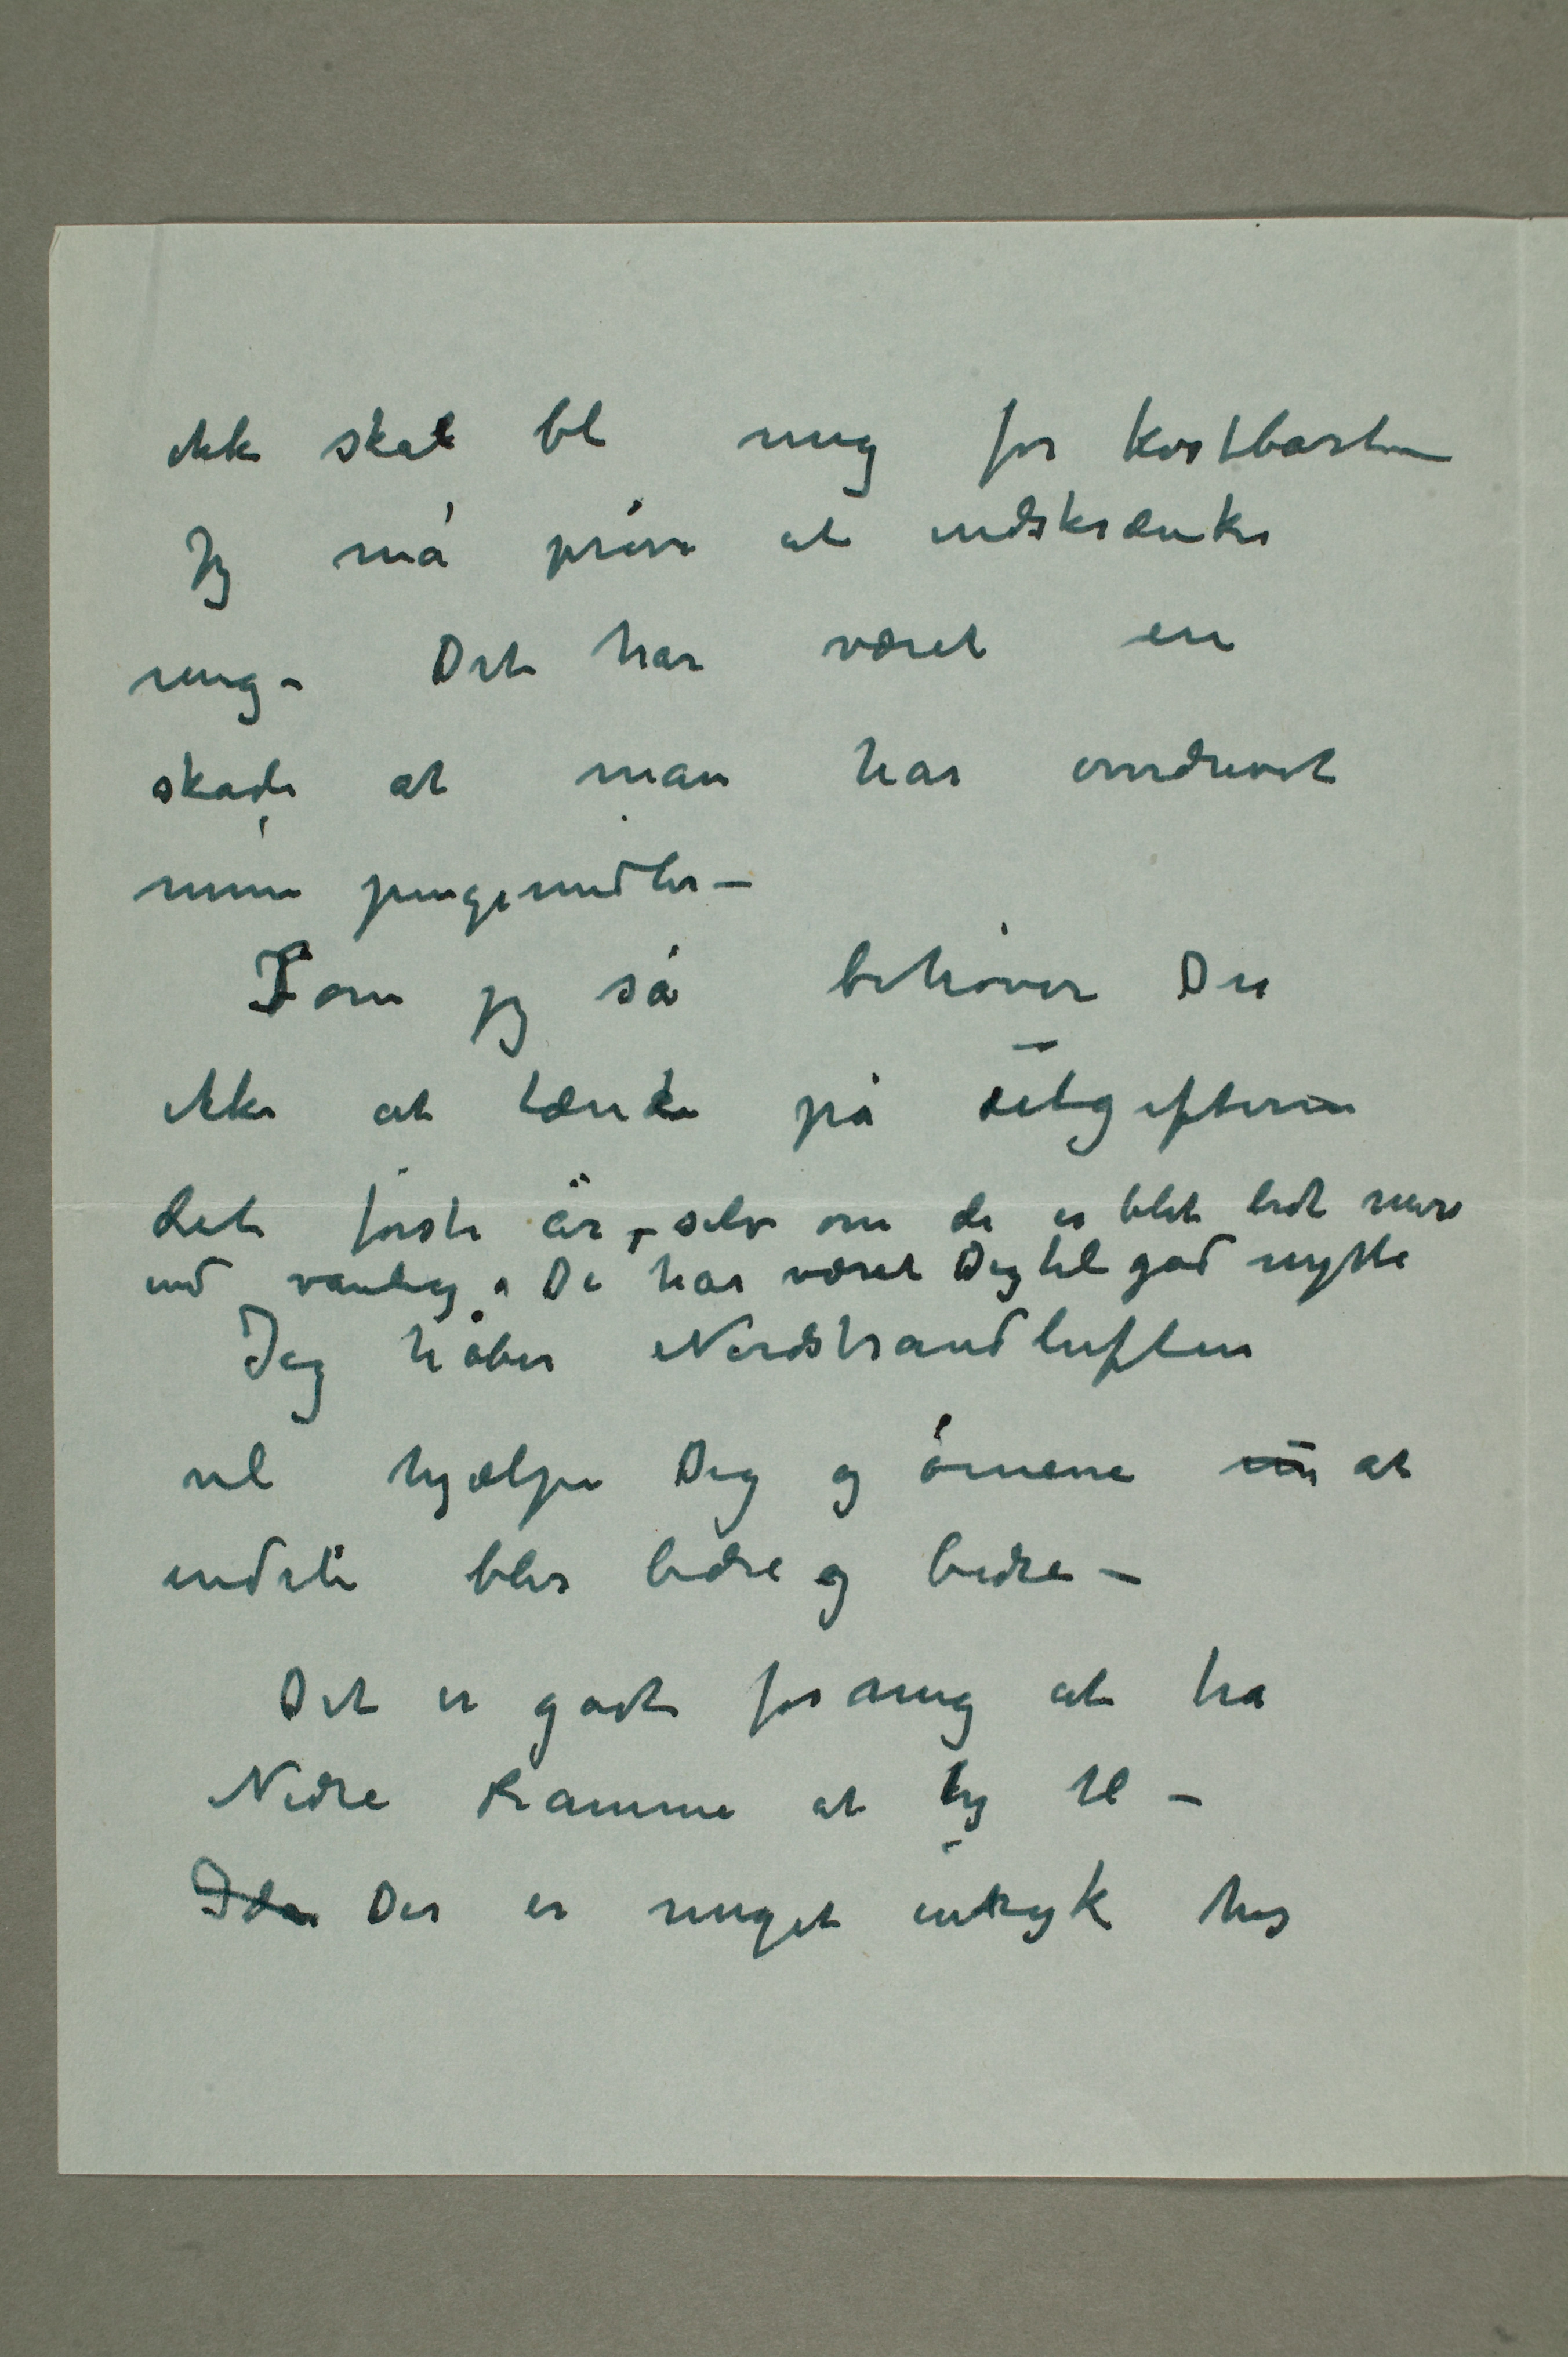 ikke skal bli mig for kostbart –
Jeg må prøve at indskrænke
mig – Det har været en
skade at man har overdrevet
mine pengemidler –
Som jeg sa behøver Du
ikke at tænke på udgifterne
det første år, – selv om de er blet lidt mere
end vanlig. De har været Dig til god nytte
Jeg håber Nordstrandluften
vil hjælpe Dig og øinene at
endeli blir bedre og bedre –
Det er godt for mig at ha
Nedre Ramme at ty til –
Ida Der er meget inryk hos